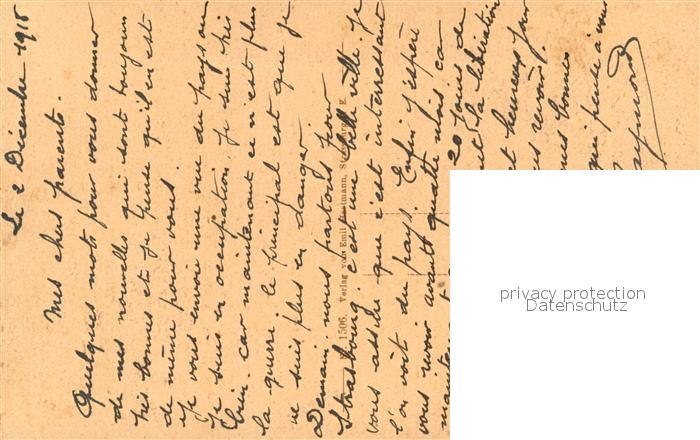 Le 2 Décembre 1918
Mes chers parents.
Quelques mots pour vous donner
de mes nouvelles qui sont toujours
très bonnes et je pense qu'il en est
de même pour vous.
Je vous envoie une vue du pays où
je suis en occupation. Je suis très
bien. car maintenant ce n'est plus
la guerre. le principal est que je
ne suis plus en danger.
Demain nous partons pour
Strasbourg. c'est une belle ville. Je
vous assure que c'est intéressant
l'on voit du pays. Enfin j'espère
vous revoir avant quatre mois car
maintenant 20 jours de
la libération
et heureux pour
revoir.
bonnes
qui pense à vous
Raymond
1506. Verlag von Emil Hartmann, Strassburg i. E.
privacy protection
Datenschutz